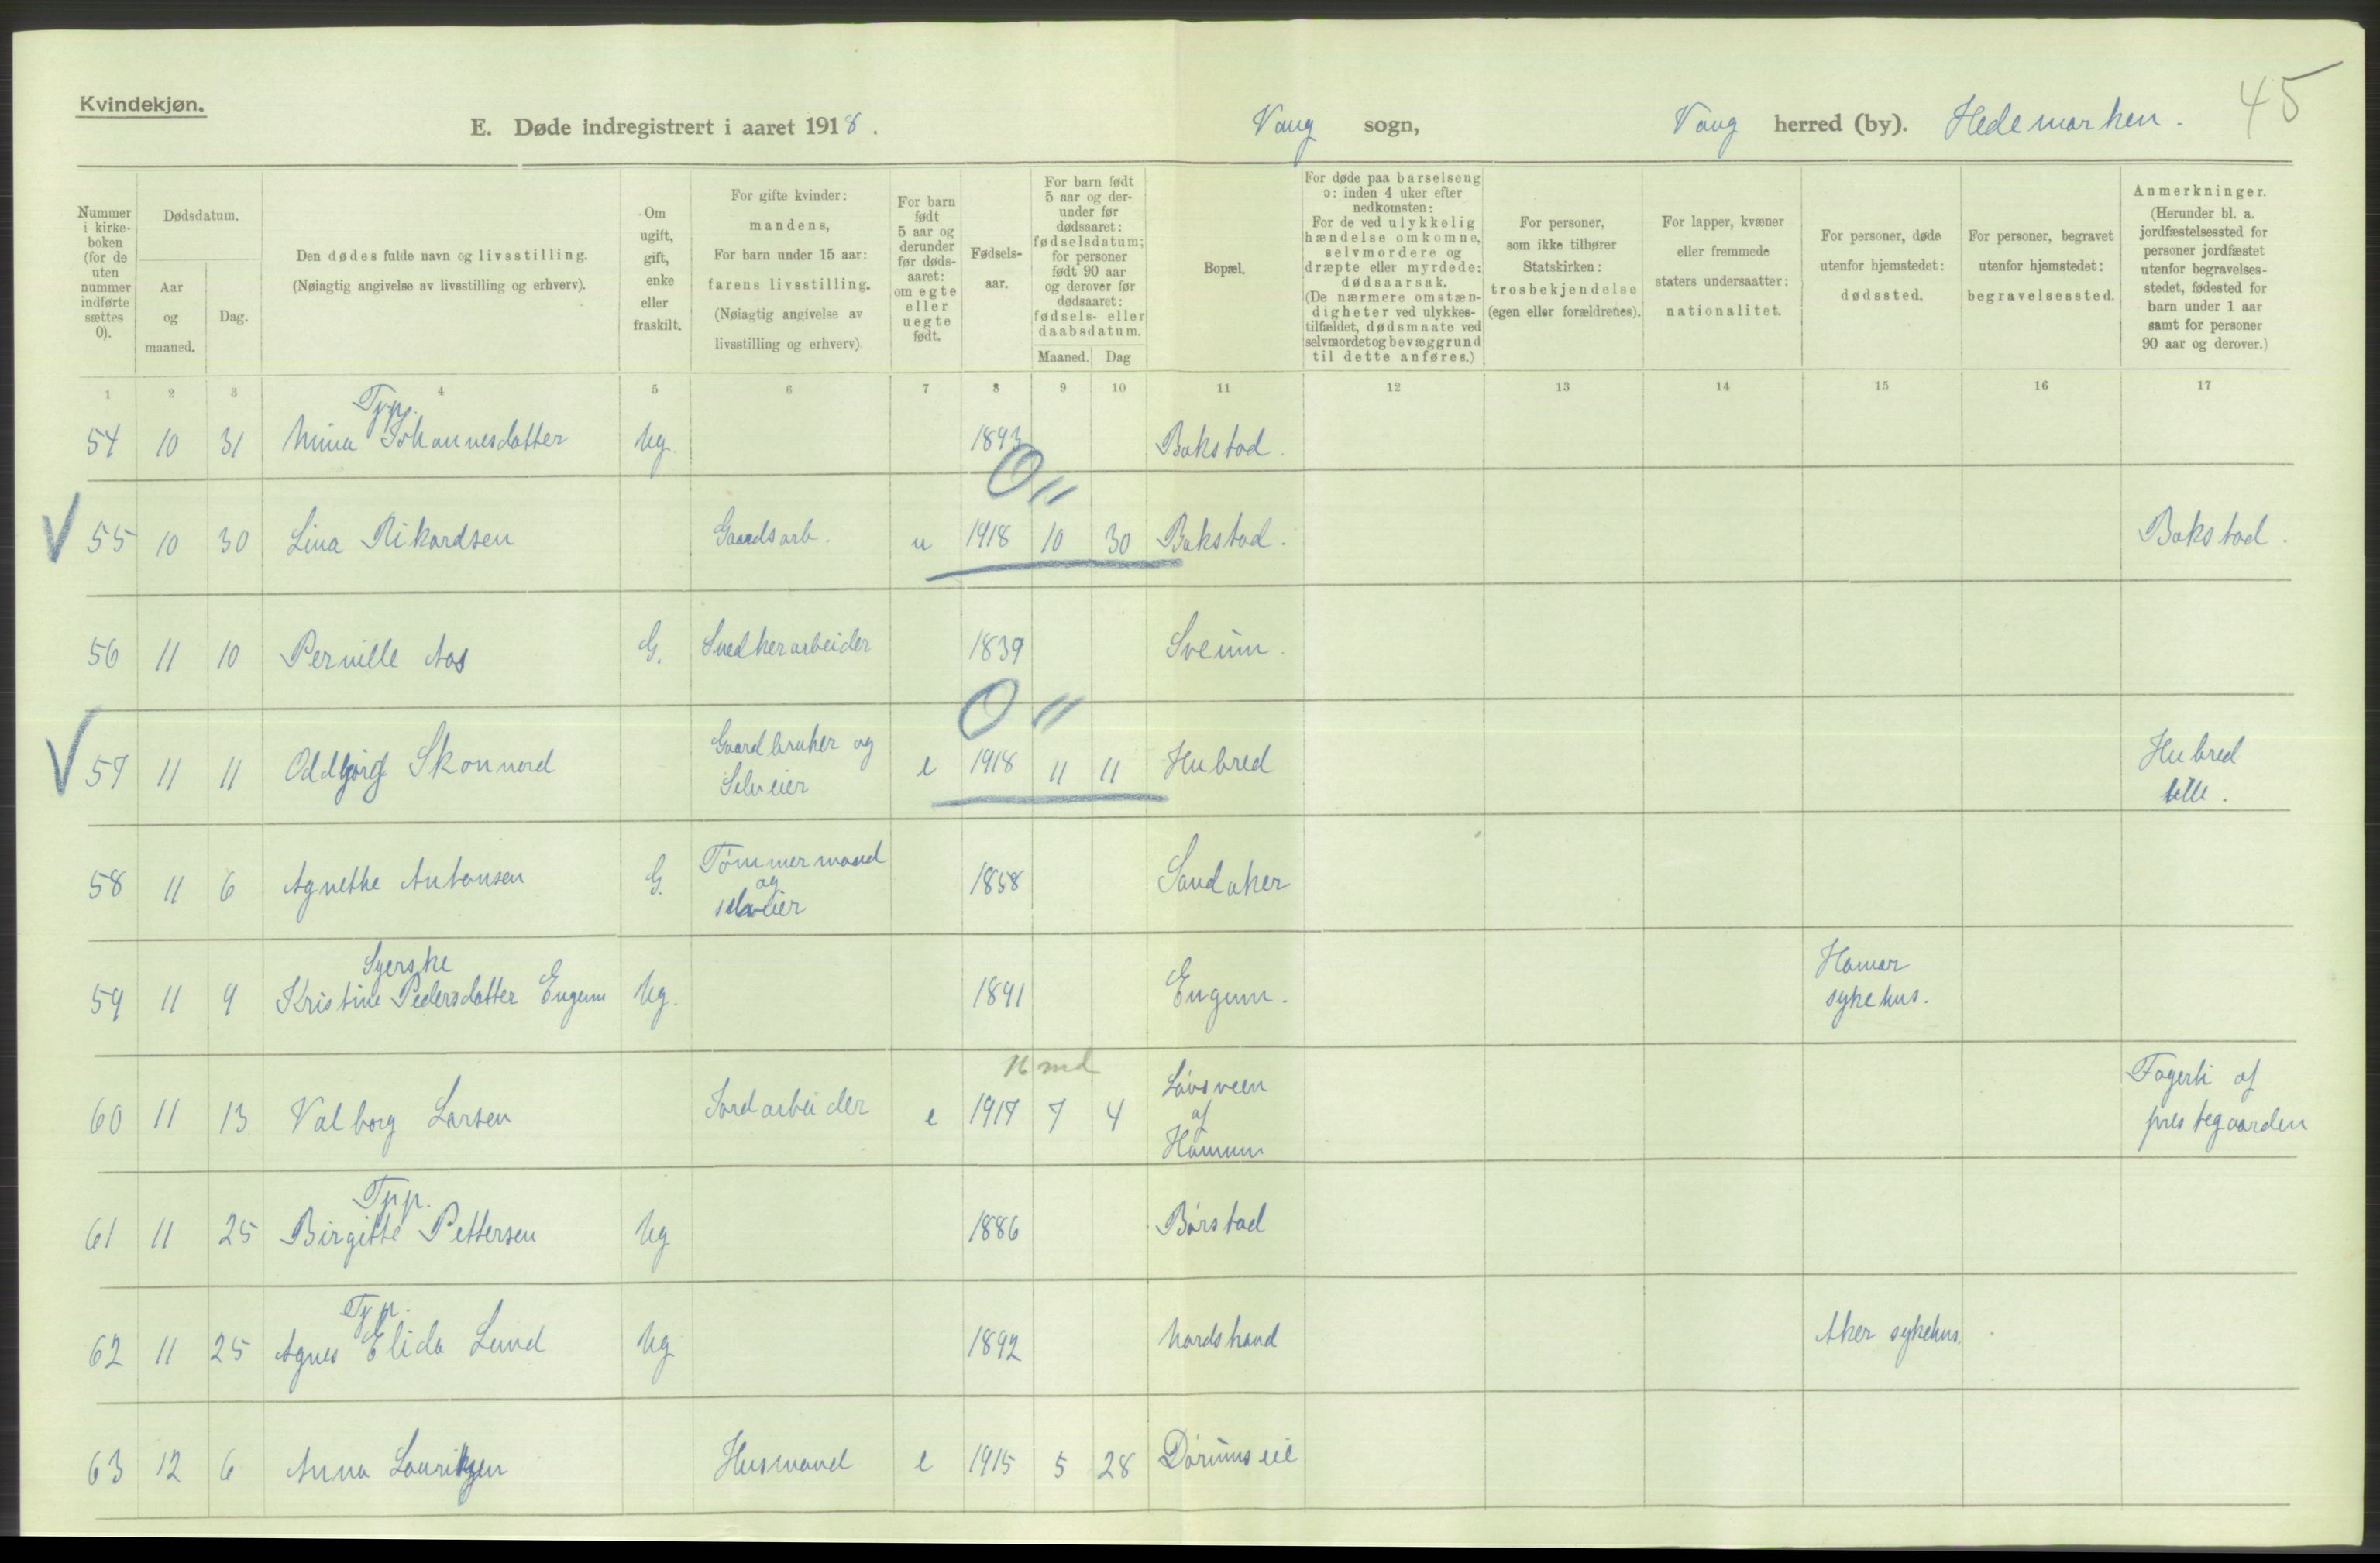 Kvindekjøn.
45
E. Døde indregistrert i aaret 1918. Vang sogn, Vang herred (by). Hedemarken.
Nummer i kirkeboken (for de uten nummer indførte sættes 0).
Dødsdatum.
Aar og maaned.
Dag.
Den dødes fulde navn og livsstilling.
(Nøiagtig angivelse av livsstilling og erhverv).
Om ugift, gift, enke eller fraskilt.
For gifte kvinder: mandens,
For barn under 15 aar: farens livsstilling.
(Nøiagtig angivelse av livsstilling og erhverv)
For barn født 5 aar og derunder før dødsaaret: om egte eller uegte født.
Fødselsaar.
For barn født 5 aar og derunder før dødsaaret: fødselsdatum; for personer født 90 aar og derover før dødsaaret: fødsels- eller daabsdatum.
Maaned. Dag
Bopæl.
For døde paa barselseng ɔ: inden 4 uker efter nedkomsten:
For de ved ulykkelig hændelse omkomne, selvmordere og dræpte eller myrdede: dødsaarsak.
(De nærmere omstændigheter ved ulykkestilfældet, dødsmaate ved selvmordet og bevæggrund til dette anføres.)
For personer, som ikke tilhører Statskirken: trosbekjendelse (egen eller forældrenes).
For lapper, kvæner eller fremmede staters undersaatter: nationalitet.
For personer, døde utenfor hjemstedet: dødssted.
For personer, begravet utenfor hjemstedet: begravelsessted.
Anmerkninger.
(Herunder bl. a. jordfæstelsessted for personer jordfæstet utenfor begravelsesstedet, fødested for barn under 1 aar samt for personer 90 aar og derover.)
1 2 3 4 5 6 7 8 9 10 11 12 13 14 15 16 17
Typ.
54 10 31 Mina Johannesdatter Ug. 1893 Bakstad.
0 11
55 10 30 Lina Rikardsen Gaardsarb. u 1918 10 30 Bakstad. Bakstad.
56 11 10 Pernille Aas G. Snedkerarbeider 1839 Sveum.
0 11
57 11 11 Oddbjørg Skonnord Gaardbruker og Selveier e 1918 11 11 Hubred Hubred lille.
58 11 6 Agnethe Antonsen G. Tømmermand og selveier 1858 Sandaker
Syerske
59 11 9 Kristine Pedersdatter Engum Ug. 1891 Engum. Hamar sykehus.
16 md
60 11 13 Valborg Larsen Jordarbeider e 1917 7 4 Løvsveen af Hamum Fagerli af prestegaarden
Typ.
61 11 25 Birgitte Pettersen Ug 1886 Børstad
Typ.
62 11 25 Agnes Elida Lund Ug 1892 Nordstrand Aker sykehus.
63 12 6 Anna Lauritzen Husmand e 1915 5 28 Dørumseie